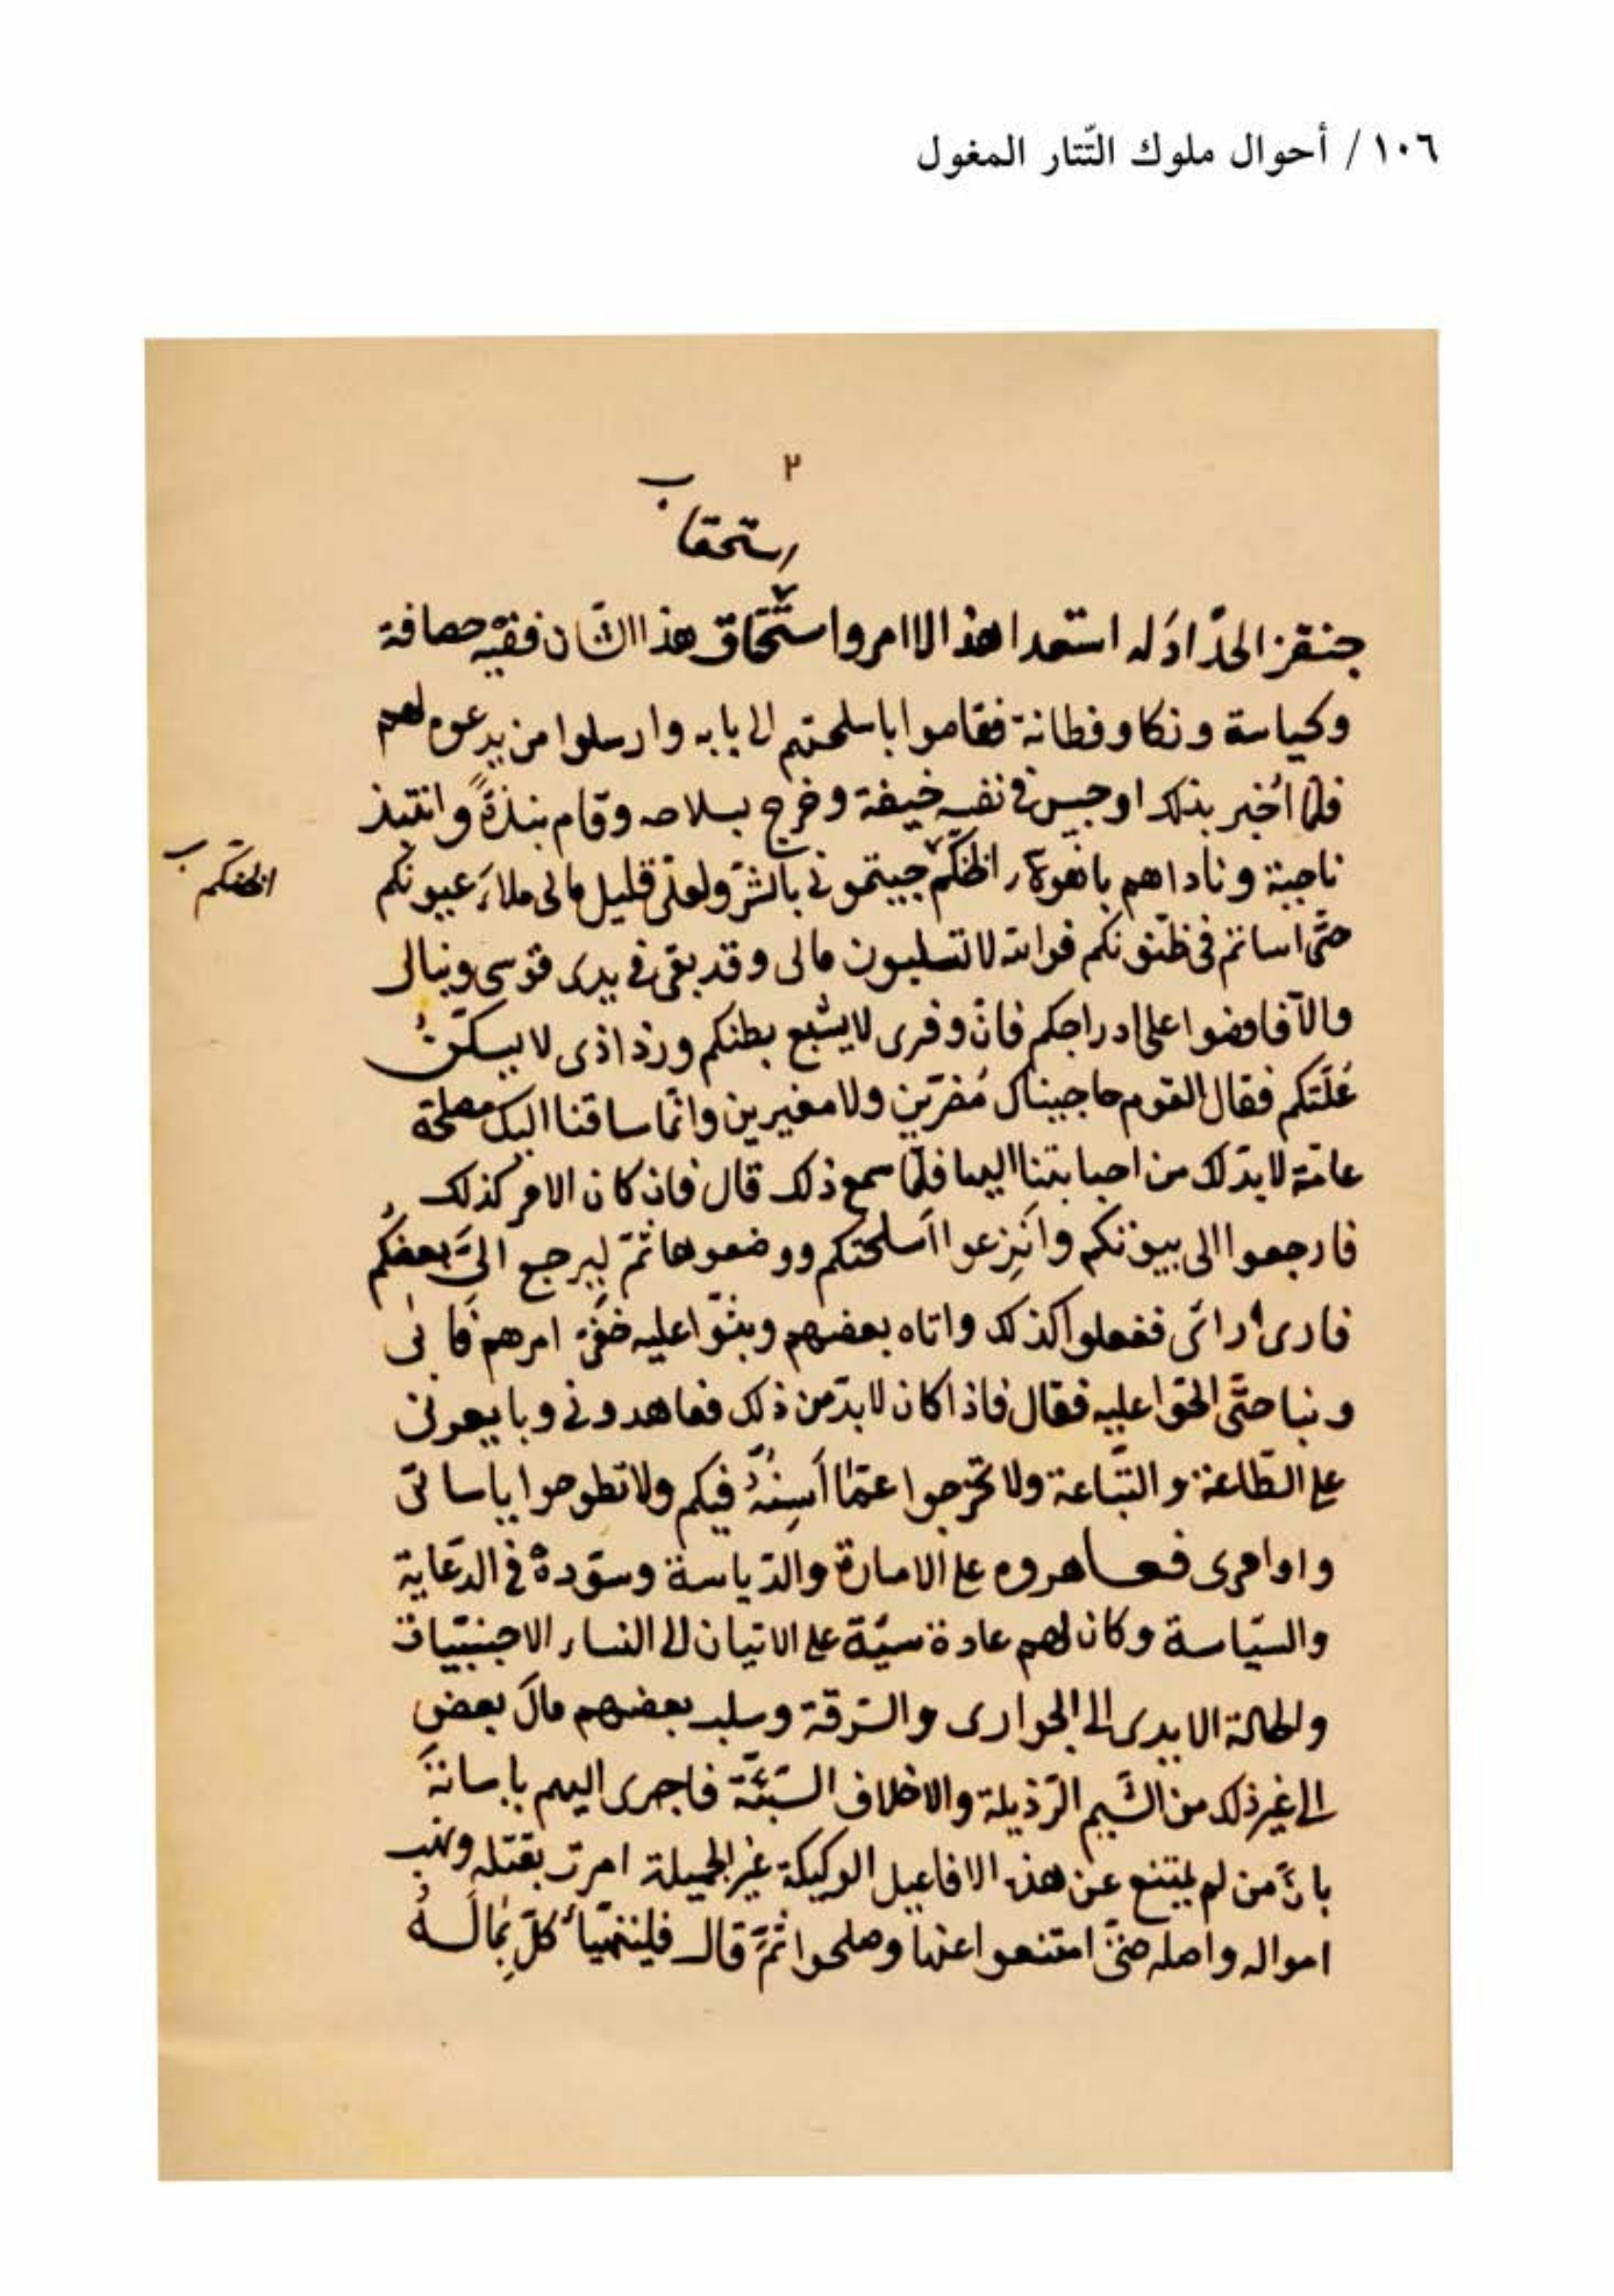 ١٠٦ / أحوال ملوك التّتار المغول
٢
ب
استحقا
جنقز الحدّاد له استعدا هذ الاامر واستّحقاق هذا الشان ففيه حصافة
وكياسة وذكا وفطانة فقاموا باسلحتهم الى بابه وارسلوا من يدعوه لهم
فلمّا أخبر بذلك اوجس في نفسه خيفة وخرج بسلاحه وقام بنذةً وانتبذ
ناحية وناداهم ياهولاء اظنّكم جيتموني بالشرّ ولعلّ قليل مالى ملاء عيونكم
اظنكم ب
حتّى اساتم في ظنونكم فوالله لا تسلبون مالى وقد بقى في يدى قوسى ونبالى
والّا فامضوا على ادراجكم فانّ وفرى لا يشبع بطنكم ورذاذى لا يسكّن
غلّتكم فقال القوم ما جيناك مُفرّين ولا مغيرين وانّما ساقنا اليك مصلحة
عامّة لا بدّ لك من اجابتنا اليها فلمّا سمع ذلك قال فان كان الامر كذلك
فارجعوا الى بيوتكم وانزعوا اسلحتكم ووضعوها ثمّ ليرجع الىّ بعضكم
فارى رائى ففعلوا كذلك واتاه بعضهم وبثّوا عليه خفىّ امرهم فابى
ونبا حتّى الحّوا عليه فقال فاذا كان لا بدّ من ذلك فعاهدونى وبايعونى
على الطّاعة والتّباعة ولا تخرجوا عمّا اَسِنُهُ فيكم ولا تطرحوا ياساتى
واوامرى فعاهدوه على الامارة والرّياسة وسوّدوه في الدّعاية
والسّياسة وكان لهم عادة سيّة على الاتيان الى النساء الاجنبيّات
واطالة الايدى الى الجوارى والسّرقة وسلب بعضهم مال بعضٍ
الى غير ذلك من الشّيم الرّذيلة والاخلاق السّيّئة فاجرى اليهم ياساتهَ
بانّ من لم يمتنع عن هذه الافاعيل الركيكة غير الجميلة امرت بقتله ونهب
امواله واهله حتّى امتنعوا عنها وصلحوا ثمّ قال فليتهيّأ كلّ بمالهُ